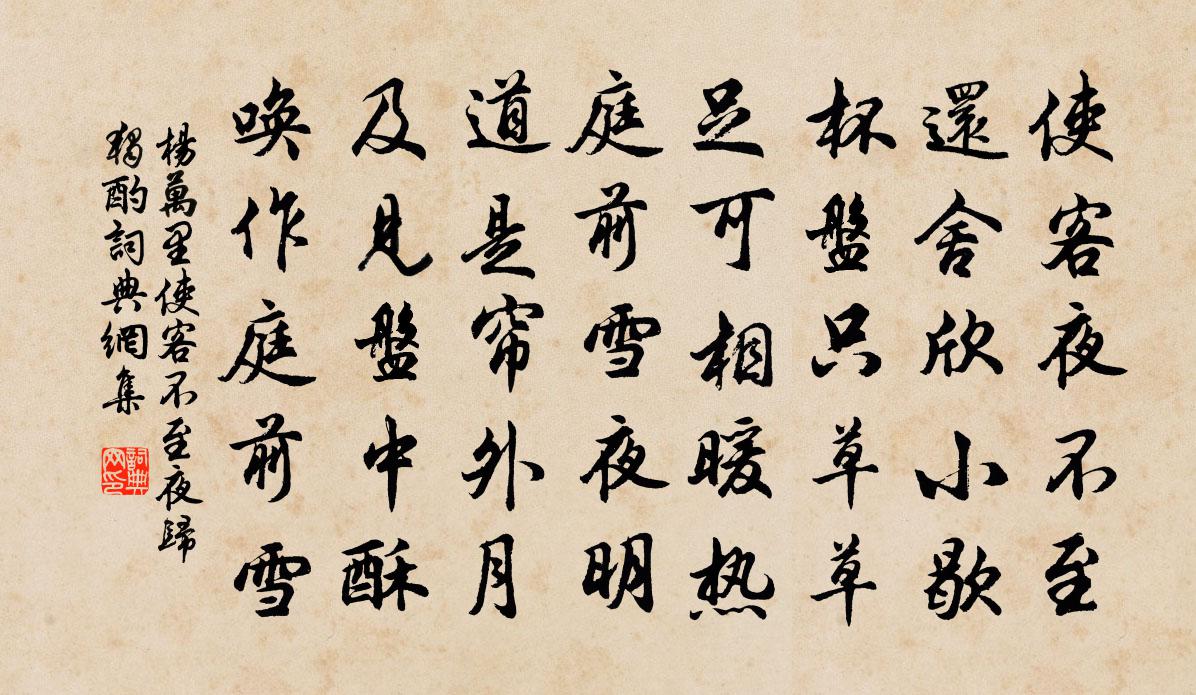 使客夜不至
還舍欣小歇
杯盤只草草
足可相暖热
庭前雪夜明
道是帘外月
及見盤中酥
喚作庭前雪
楊萬里使客不至夜歸
獨酌詞典網集
詞典
网印